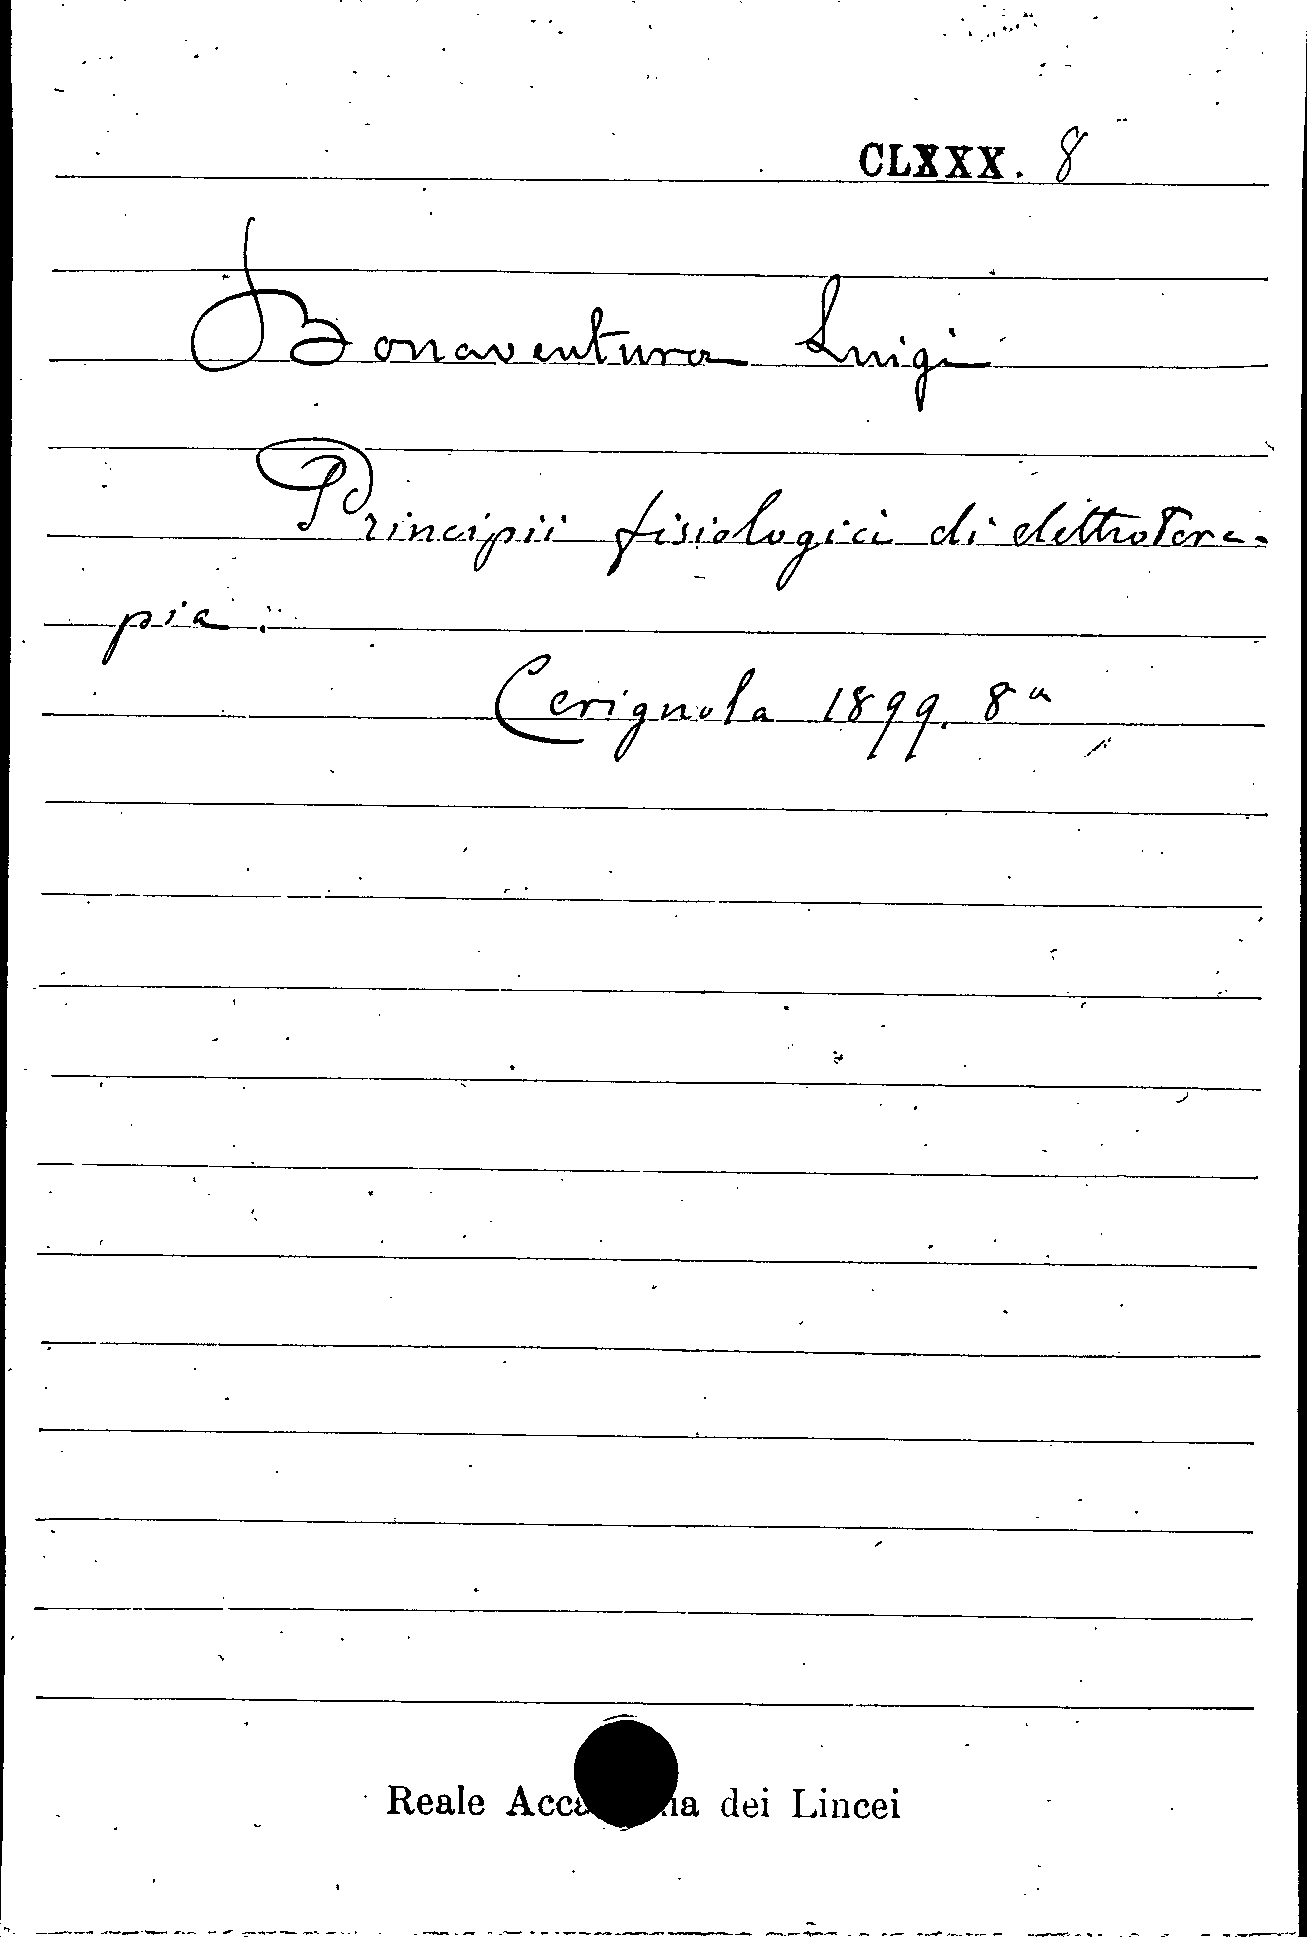 CLXXX. 8
Bonaventura Luigi
Principii fisiologici di elettrotera-
pia.
Cerignola 1899. 8ª
Reale Acca ia dei Lincei